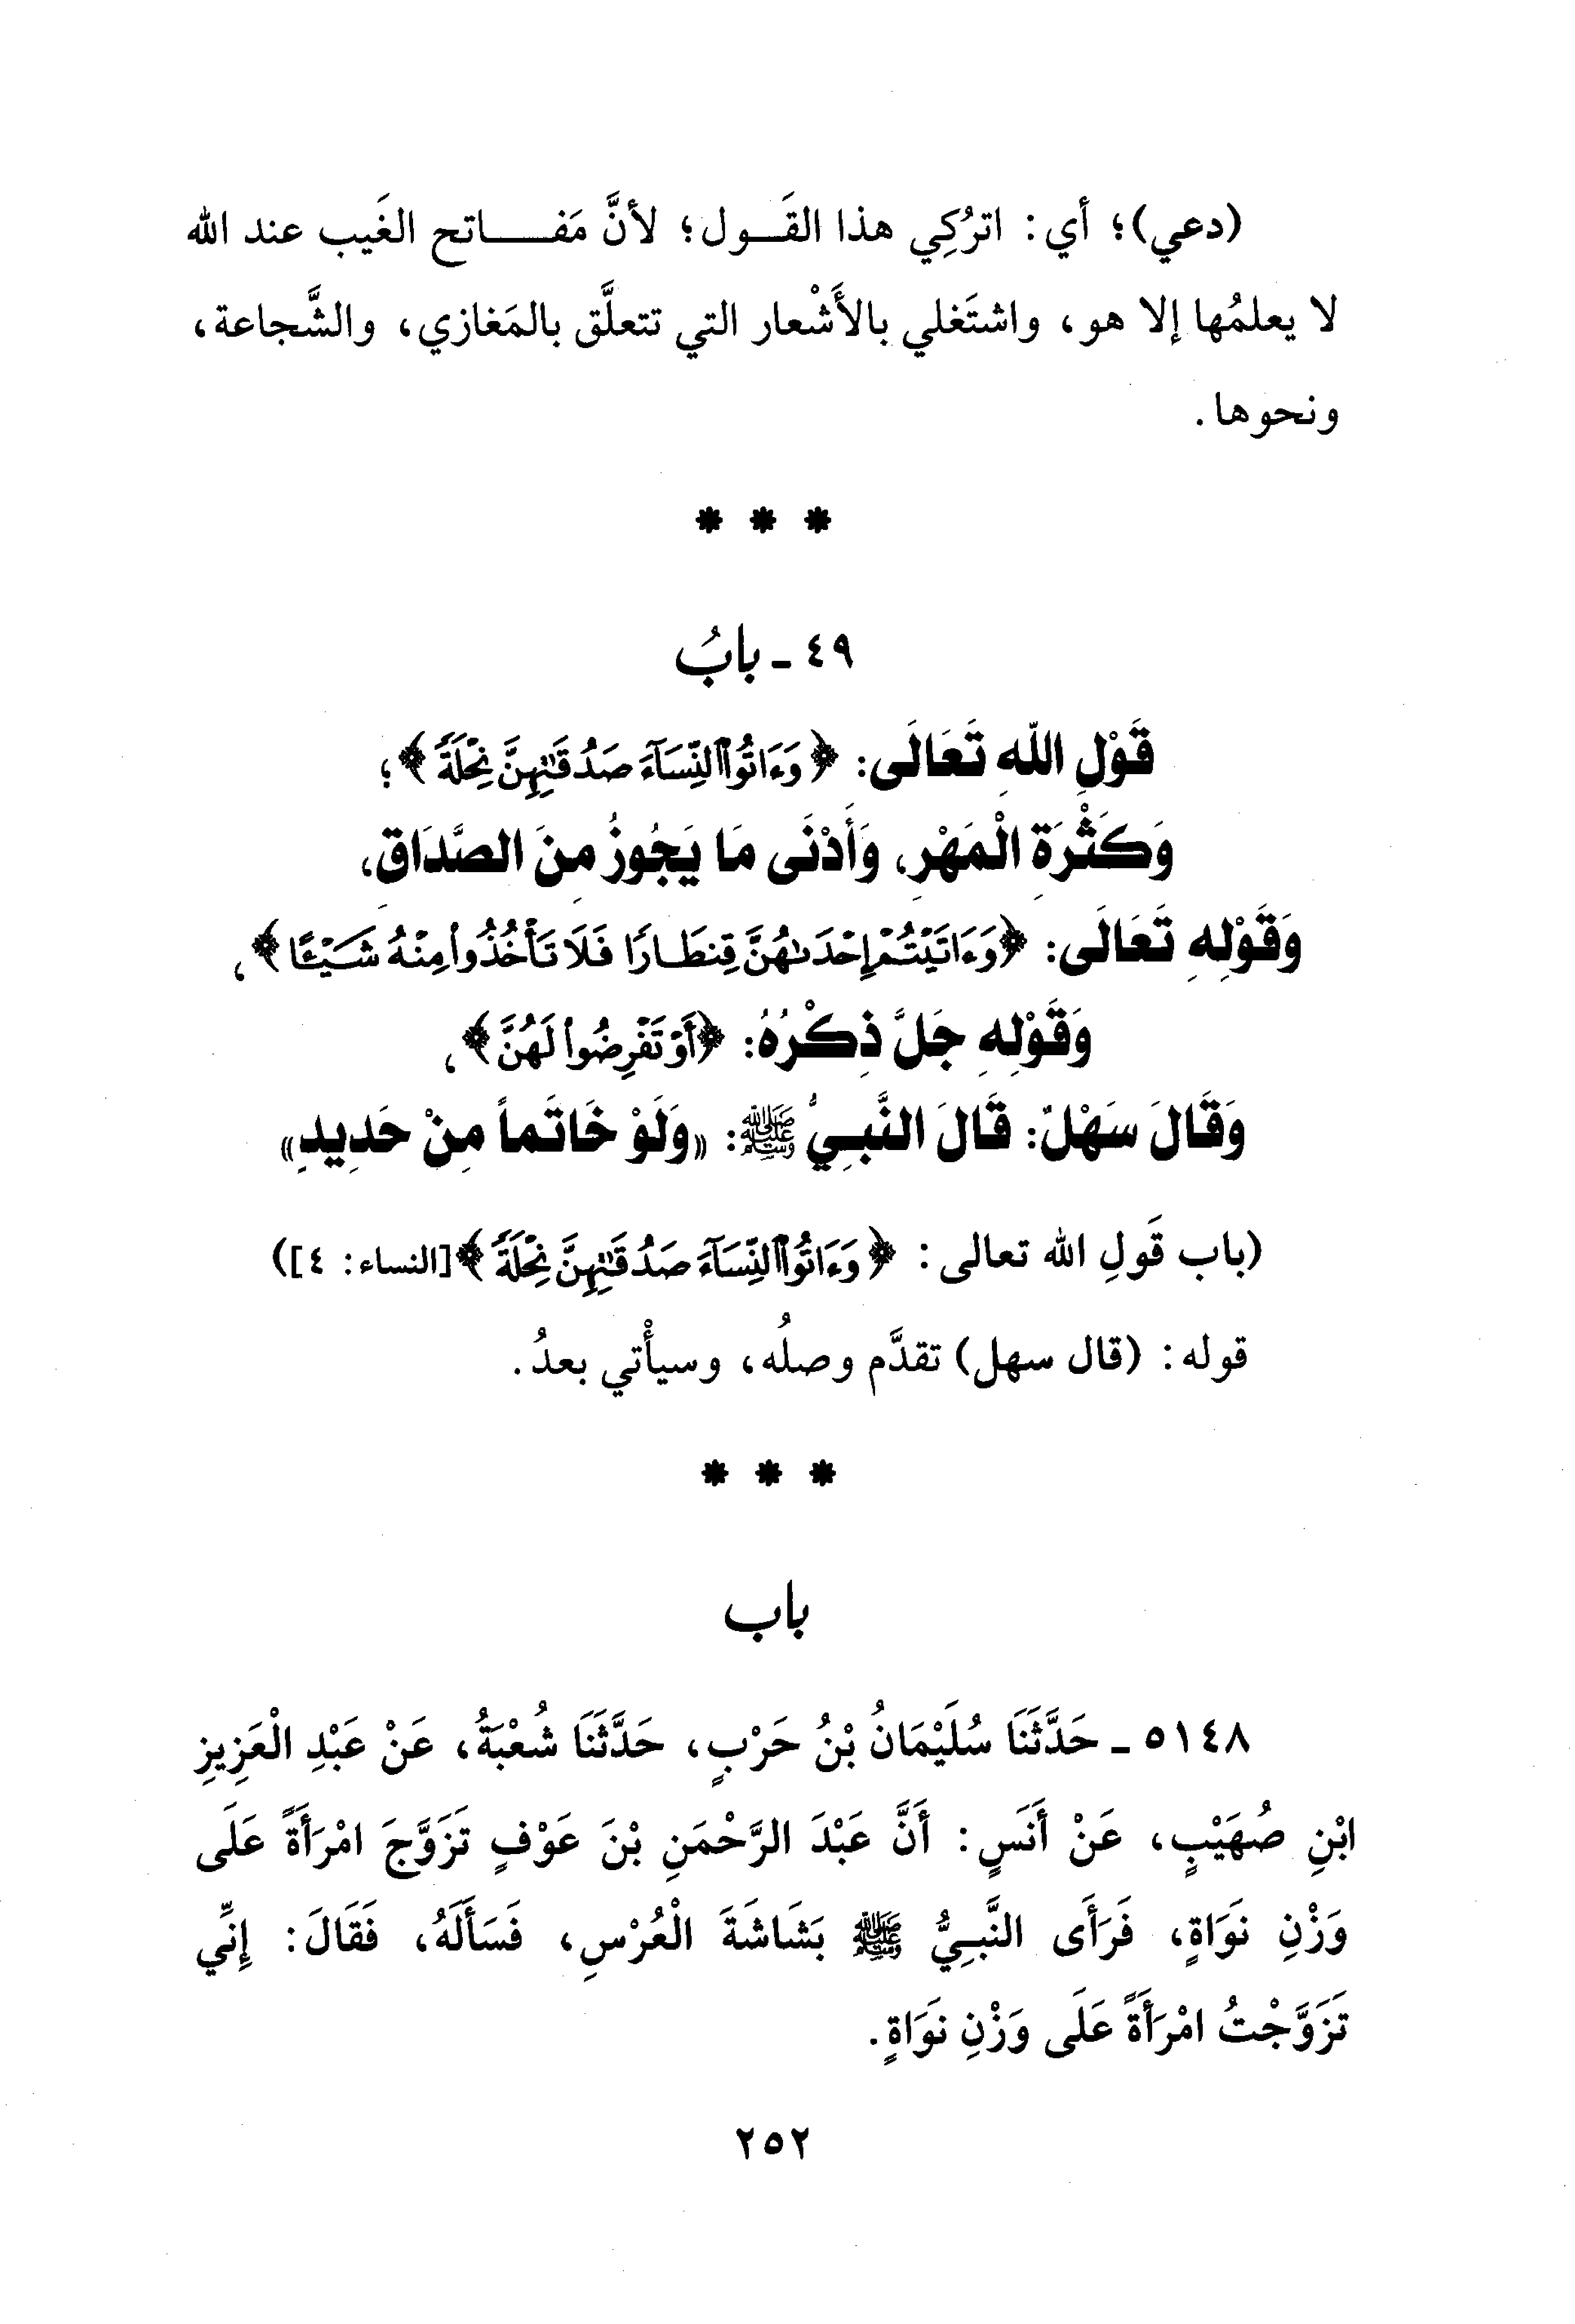 (دعي)؛ أي: اترُكِي هذا القَول؛ لأنَّ مَفاتح الغَيب عند الله
لا يعلمُها إلا هو، واشتَغلي بالأَشْعار التي تتعلَّق بالمَغازي، والشَّجاعة،
ونحوها.
* * *
٤٩ - بابُ
قَوْلِ اللهِ تَعَالَى: ﴿وَءَاتُوا۟ ٱلنِّسَآءَ صَدُقَـٰتِهِنَّ نِحْلَةً﴾؛
وَكَثْرَةِ الْمَهْرِ، وَأَدْنَى مَا يَجُوزُ مِنَ الصَّدَاقِ،
وَقَوْلِهِ تَعَالَى: ﴿وَءَاتَيْتُمْ إِحْدَىٰهُنَّ قِنطَارًا فَلَا تَأْخُذُوا۟ مِنْهُ شَيْـًٔا﴾،
وَقَوْلِهِ جَلَّ ذِكْرُهُ: ﴿أَوْ تَفْرِضُوا۟ لَهُنَّ﴾،
وَقَالَ سَهْلٌ: قَالَ النَّبِيُّ ﷺ: «وَلَوْ خَاتَماً مِنْ حَدِيدٍ»
(باب قَولِ الله تعالى: ﴿وَءَاتُوا۟ ٱلنِّسَآءَ صَدُقَـٰتِهِنَّ نِحْلَةً﴾[النساء: ٤])
قوله: (قال سهل) تقدَّم وصلُه، وسيأْتي بعدُ.
* * *
باب
٥١٤٨ - حَدَّثَنَا سُلَيْمَانُ بْنُ حَرْبٍ، حَدَّثَنَا شُعْبَةُ، عَنْ عَبْدِ الْعَزِيزِ
ابْنِ صُهَيْبٍ، عَنْ أَنَسٍ: أَنَّ عَبْدَ الرَّحْمَنِ بْنَ عَوْفٍ تَزَوَّجَ امْرَأَةً عَلَى
وَزْنِ نَوَاةٍ، فَرَأَى النَّبِيُّ ﷺ بَشَاشَةَ الْعُرْسِ، فَسَأَلَهُ، فَقَالَ: إِنِّي
تَزَوَّجْتُ امْرَأَةً عَلَى وَزْنِ نَوَاةٍ.
٢٥٢